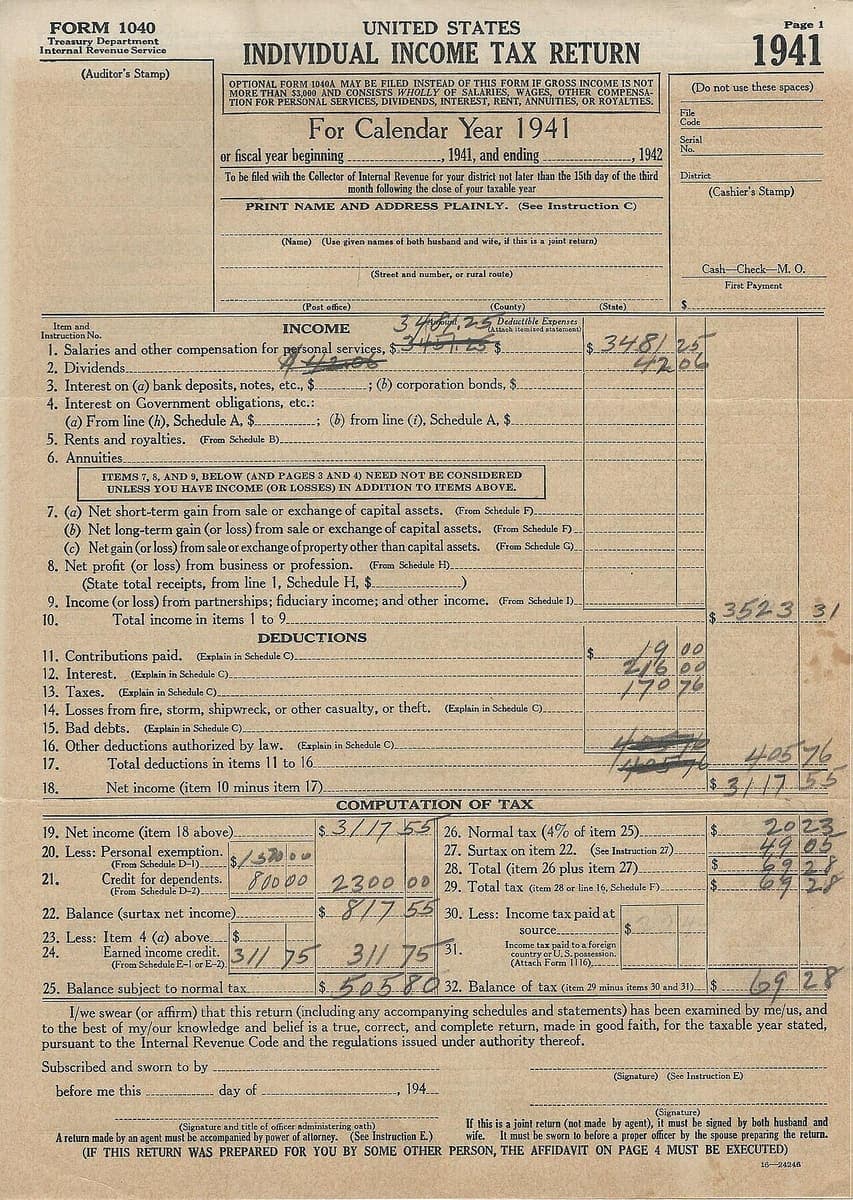 FORM 1040
Treasury Department
Internal Revenue Service
(Auditor's Stamp)
UNITED STATES
INDIVIDUAL INCOME TAX RETURN
Page 1
1941
OPTIONAL FORM 1040A MAY BE FILED INSTEAD OF THIS FORM IF GROSS INCOME IS NOT
MORE THAN $3,000 AND CONSISTS WHOLLY OF SALARIES, WAGES, OTHER COMPENSA-
TION FOR PERSONAL SERVICES, DIVIDENDS, INTEREST, RENT, ANNUITIES, OR ROYALTIES.
For Calendar Year 1941
or fiscal year beginning , 1941, and ending , 1942
To be filed with the Collector of Internal Revenue for your district not later than the 15th day of the third
month following the close of your taxable year
PRINT NAME AND ADDRESS PLAINLY. (See Instruction C)
(Name) (Use given names of both husband and wife, if this is a joint return)
(Street and number, or rural route)
(Post office) (County) (State)
(Do not use these spaces)
File
Code
Serial
No.
District
(Cashier's Stamp)
Cash—Check—M. O.
First Payment
$
Item and
Instruction No.
INCOME
Amount
Deductible Expenses
(Attach itemized statement)
1. Salaries and other compensation for personal services, $ $ $ 3481 25
2. Dividends 42 06
3. Interest on (a) bank deposits, notes, etc., $ ; (b) corporation bonds, $
4. Interest on Government obligations, etc.:
(a) From line (h), Schedule A, $ ; (b) from line (i), Schedule A, $
5. Rents and royalties. (From Schedule B)
6. Annuities
ITEMS 7, 8, AND 9, BELOW (AND PAGES 3 AND 4) NEED NOT BE CONSIDERED
UNLESS YOU HAVE INCOME (OR LOSSES) IN ADDITION TO ITEMS ABOVE.
7. (a) Net short-term gain from sale or exchange of capital assets. (From Schedule F)
(b) Net long-term gain (or loss) from sale or exchange of capital assets. (From Schedule F)
(c) Net gain (or loss) from sale or exchange of property other than capital assets. (From Schedule G)
8. Net profit (or loss) from business or profession. (From Schedule H)
(State total receipts, from line 1, Schedule H, $ )
9. Income (or loss) from partnerships; fiduciary income; and other income. (From Schedule I)
10. Total income in items 1 to 9 $ 3523 31
DEDUCTIONS
11. Contributions paid. (Explain in Schedule C) $ 19 00
12. Interest. (Explain in Schedule C) 216 00
13. Taxes. (Explain in Schedule C) 170 76
14. Losses from fire, storm, shipwreck, or other casualty, or theft. (Explain in Schedule C)
15. Bad debts. (Explain in Schedule C)
16. Other deductions authorized by law. (Explain in Schedule C)
17. Total deductions in items 11 to 16 405 76
18. Net income (item 10 minus item 17) $ 3117 55
COMPUTATION OF TAX
19. Net income (item 18 above) $ 3117 55
20. Less: Personal exemption. $ 1500 00
(From Schedule D-1)
21. Credit for dependents. 800 00 2300 00
(From Schedule D-2)
22. Balance (surtax net income) $ 817 55
23. Less: Item 4 (a) above $
24. Earned income credit. 311 75 311 75
(From Schedule E-1 or E-2)
25. Balance subject to normal tax $ 505 80
26. Normal tax (4% of item 25) $ 20 23
27. Surtax on item 22. (See Instruction 27) 49 05
28. Total (item 26 plus item 27) $ 69 28
29. Total tax (item 28 or line 16, Schedule F) $ 69 28
30. Less: Income tax paid at
source $
31. Income tax paid to a foreign
country or U. S. possession.
(Attach Form 1116)
32. Balance of tax (item 29 minus items 30 and 31) $ 69 28
I/we swear (or affirm) that this return (including any accompanying schedules and statements) has been examined by me/us, and
to the best of my/our knowledge and belief is a true, correct, and complete return, made in good faith, for the taxable year stated,
pursuant to the Internal Revenue Code and the regulations issued under authority thereof.
Subscribed and sworn to by
before me this day of , 194
(Signature and title of officer administering oath)
(Signature) (See Instruction E)
(Signature)
A return made by an agent must be accompanied by power of attorney. (See Instruction E.)
If this is a joint return (not made by agent), it must be signed by both husband and
wife. It must be sworn to before a proper officer by the spouse preparing the return.
(IF THIS RETURN WAS PREPARED FOR YOU BY SOME OTHER PERSON, THE AFFIDAVIT ON PAGE 4 MUST BE EXECUTED)
16—24246